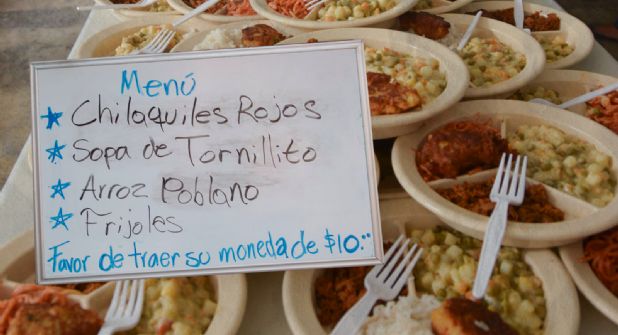 Menú
Chiloquiles Rojos
Sopa de Tornillito
Arroz Poblano
Frijoles
Favor de traer su moneda de $10.00